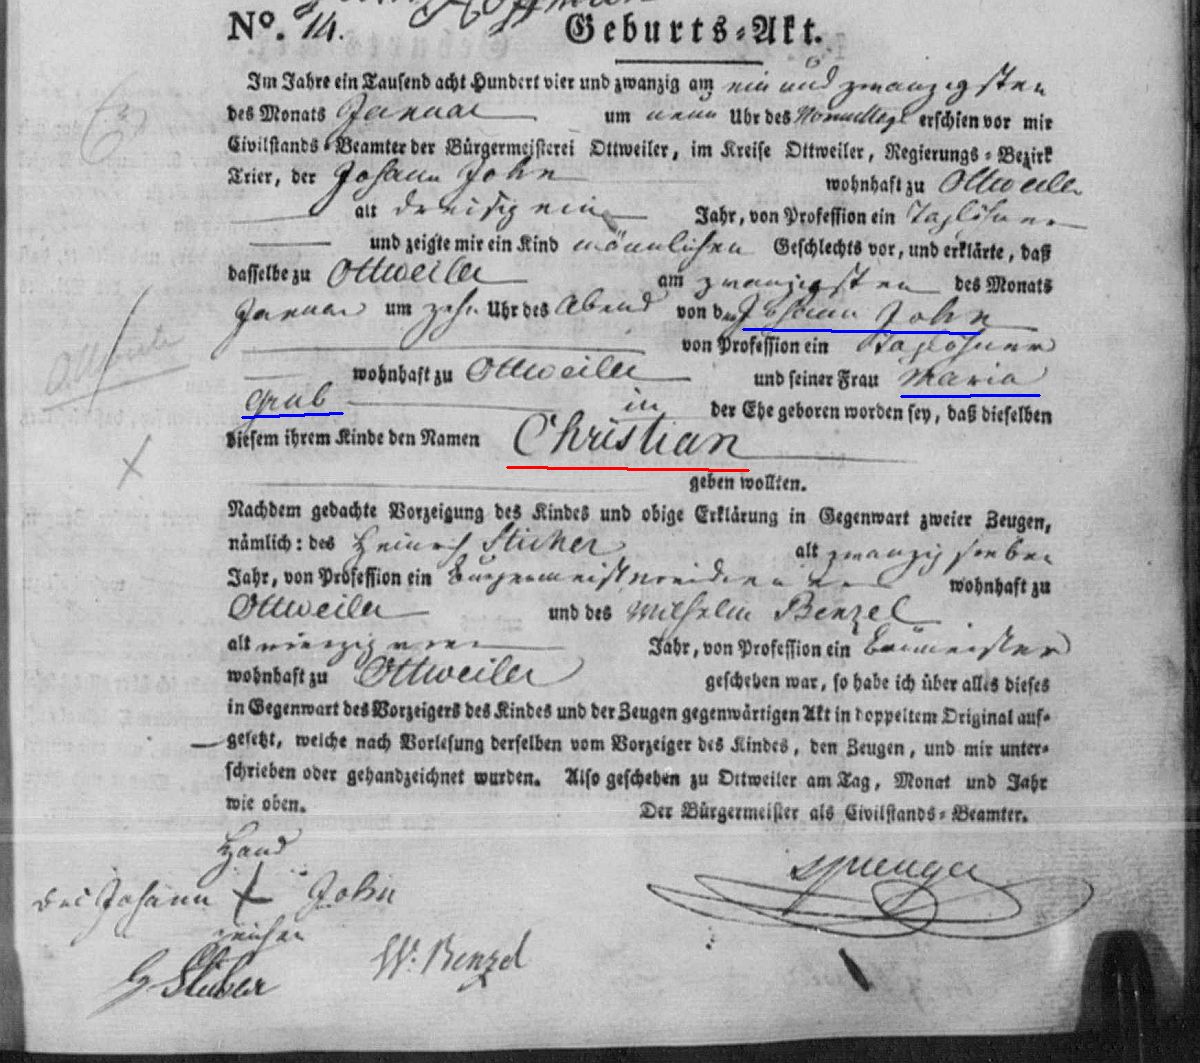 Nº. 14. Geburts-Akt.
Im Jahre ein Tausend acht Hundert vier und zwanzig am ein und zwanzigsten
des Monats Januar um neun Uhr des Vormittags erschien vor mir
Civilstands-Beamter der Bürgermeisterei Ottweiler, im Kreise Ottweiler, Regierungs-Bezirk
Trier, der Johann John wohnhaft zu Ottweiler
alt dreisig ein Jahr, von Profession ein Taglöhner
und zeigte mir ein Kind männlichen Geschlechts vor, und erklärte, daß
dasselbe zu Ottweiler am zwanzigsten des Monats
Januar um zehn Uhr des Abend von dem Johann John
von Profession ein Taglöhner
wohnhaft zu Ottweiler und seiner Frau Maria
Grub in der Ehe geboren worden sey, daß dieselben
diesem ihrem Kinde den Namen Christian
geben wollten.
Nachdem gedachte Vorzeigung des Kindes und obige Erklärung in Gegenwart zweier Zeugen,
nämlich: des Heinrich alt zwanzig sieben
Jahr, von Profession ein wohnhaft zu
Ottweiler und des Wilhelm Benzel
alt vierzig Jahr, von Profession ein
wohnhaft zu Ottweiler geschehen war, so habe ich über alles dieses
in Gegenwart des Vorzeigers des Kindes und der Zeugen gegenwärtigen Akt in doppeltem Original auf-
gesetzt, welche nach Vorlesung derselben vom Vorzeiger des Kindes, den Zeugen, und mir unter-
schrieben oder gehandzeichnet wurden. Also geschehen zu Ottweiler am Tag, Monat und Jahr
wie oben. Der Bürgermeister als Civilstands-Beamter.
Hand
des Johann John
zeichen
W. Benzel